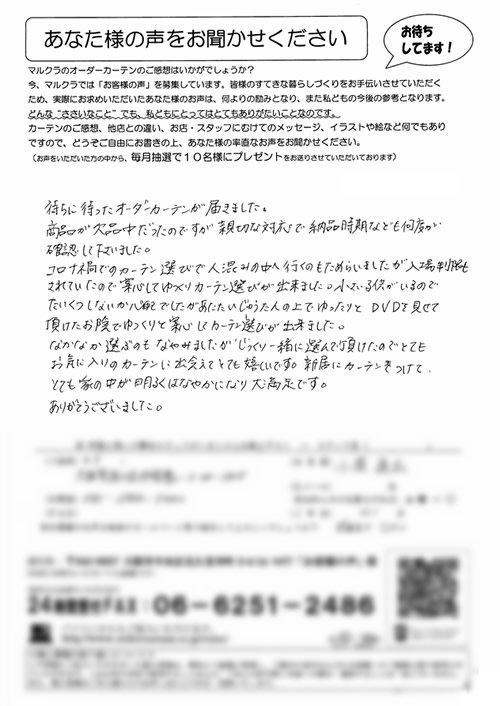 あなた様の声をお聞かせください
お待ち
してます！
マルクラのオーダーカーテンのご感想はいかがでしょうか？
今、マルクラでは「お客様の声」を募集しています。皆様のすてきな暮らしづくりをお手伝いさせていただく
ため、実際にお求めいただいたあなた様のお声は、何よりの励みとなり、また私どもの今後の参考となります。
どんな“ささいなこと”でも、私どもにとってはとてもありがたいことなのです。
カーテンのご感想、他店との違い、お店・スタッフにむけてのメッセージ、イラストや絵など何でもあり
ますので、どうぞご自由にお書きの上、あなた様の率直なお声をお聞かせください。
（お声をいただいた方の中から、毎月抽選で１０名様にプレゼントをお送りさせていただいております）
待ちに待ったオーダーカーテンが届きました。
商品が欠品中だったのですが親切な対応で納品時期なども何度か
確認して下さいました。
コロナ禍でのカーテン選びで人混みの中へ行くのもためらいましたが入場制限も
されていたので安心してゆっくりカーテン選びが出来ました。小さい子供がいるので
たいくつしないか心配でしたがあたたいじゅうたんの上でゆったりとDVDを見せて
頂けたお陰でゆっくりと安心してカーテン選びが出来ました。
なかなか選ぶのもなやみましたがじっくり一緒に選んで頂けたのでとても
お気に入りのカーテンに出会えてとても嬉しいです。新居にカーテンをつけて、
とても家の中が明るくはなやかになり大満足です。
ありがとうございました。
FAX：06-6251-2486